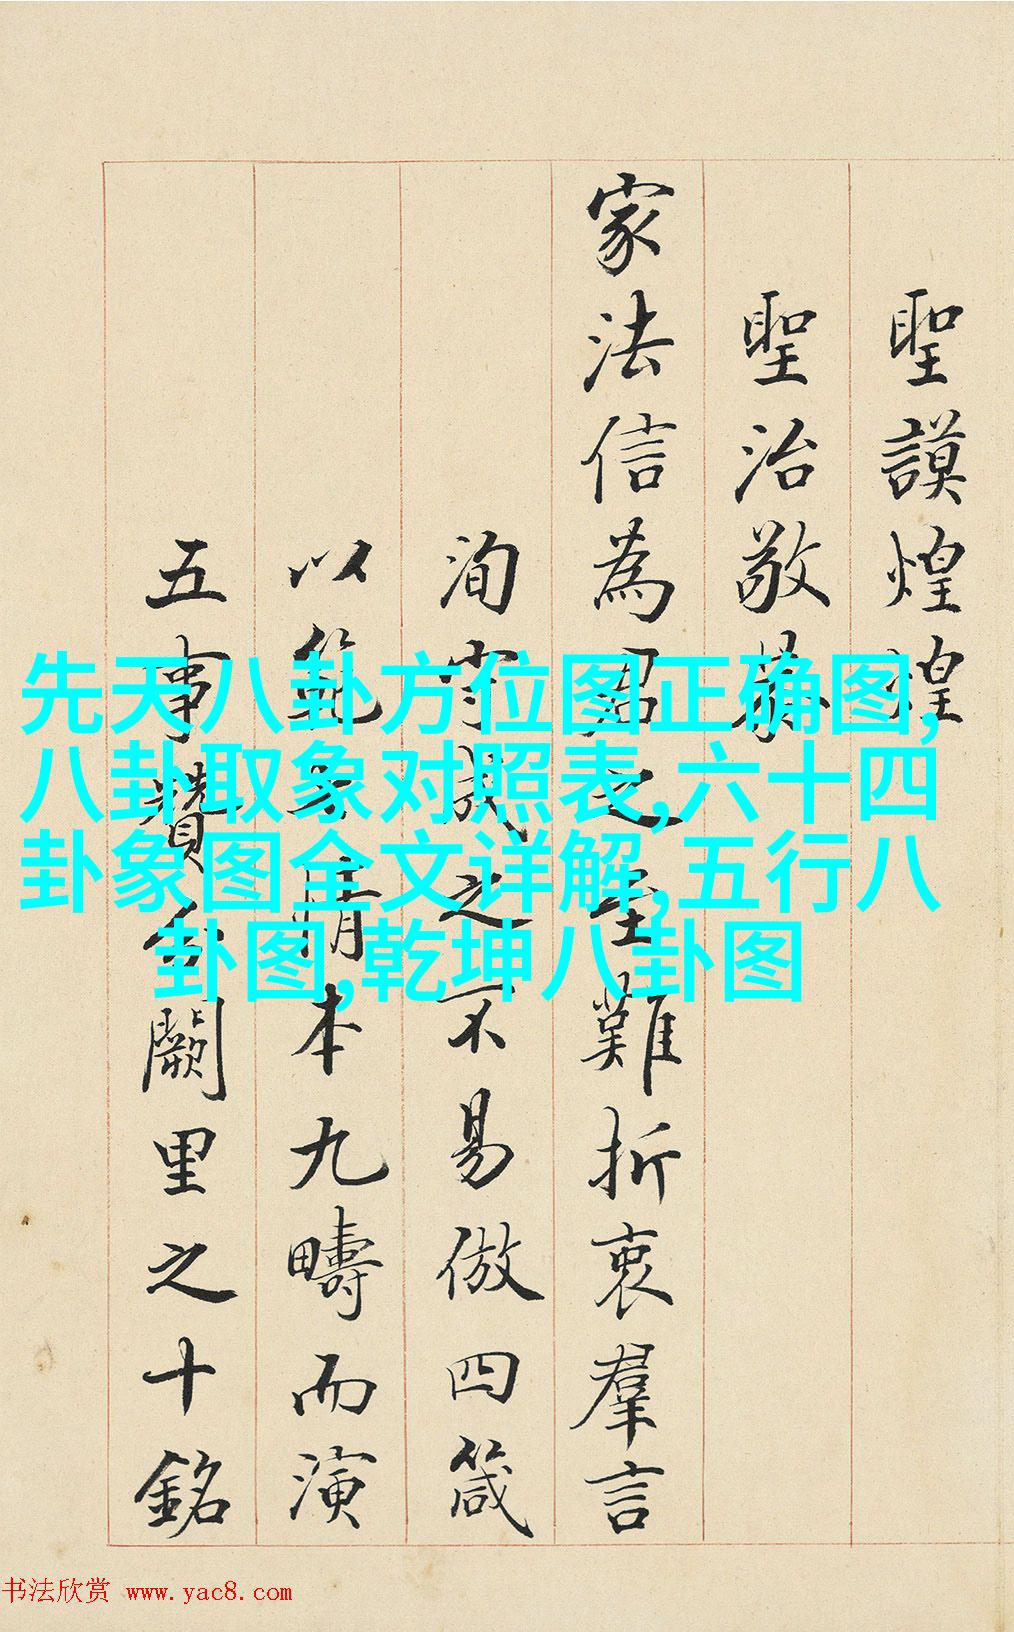 聖謨煌煌
聖治敬
家法信為君之至難折衷羣言
洵守成之不易倣四箴
以範情本九疇而演
五事贊闕里之十銘
先天八卦方位图正确图,
八卦取象对照表,六十四
卦象图全文详解,五行八
卦图,乾坤八卦图
书法欣赏 www.yac8.com